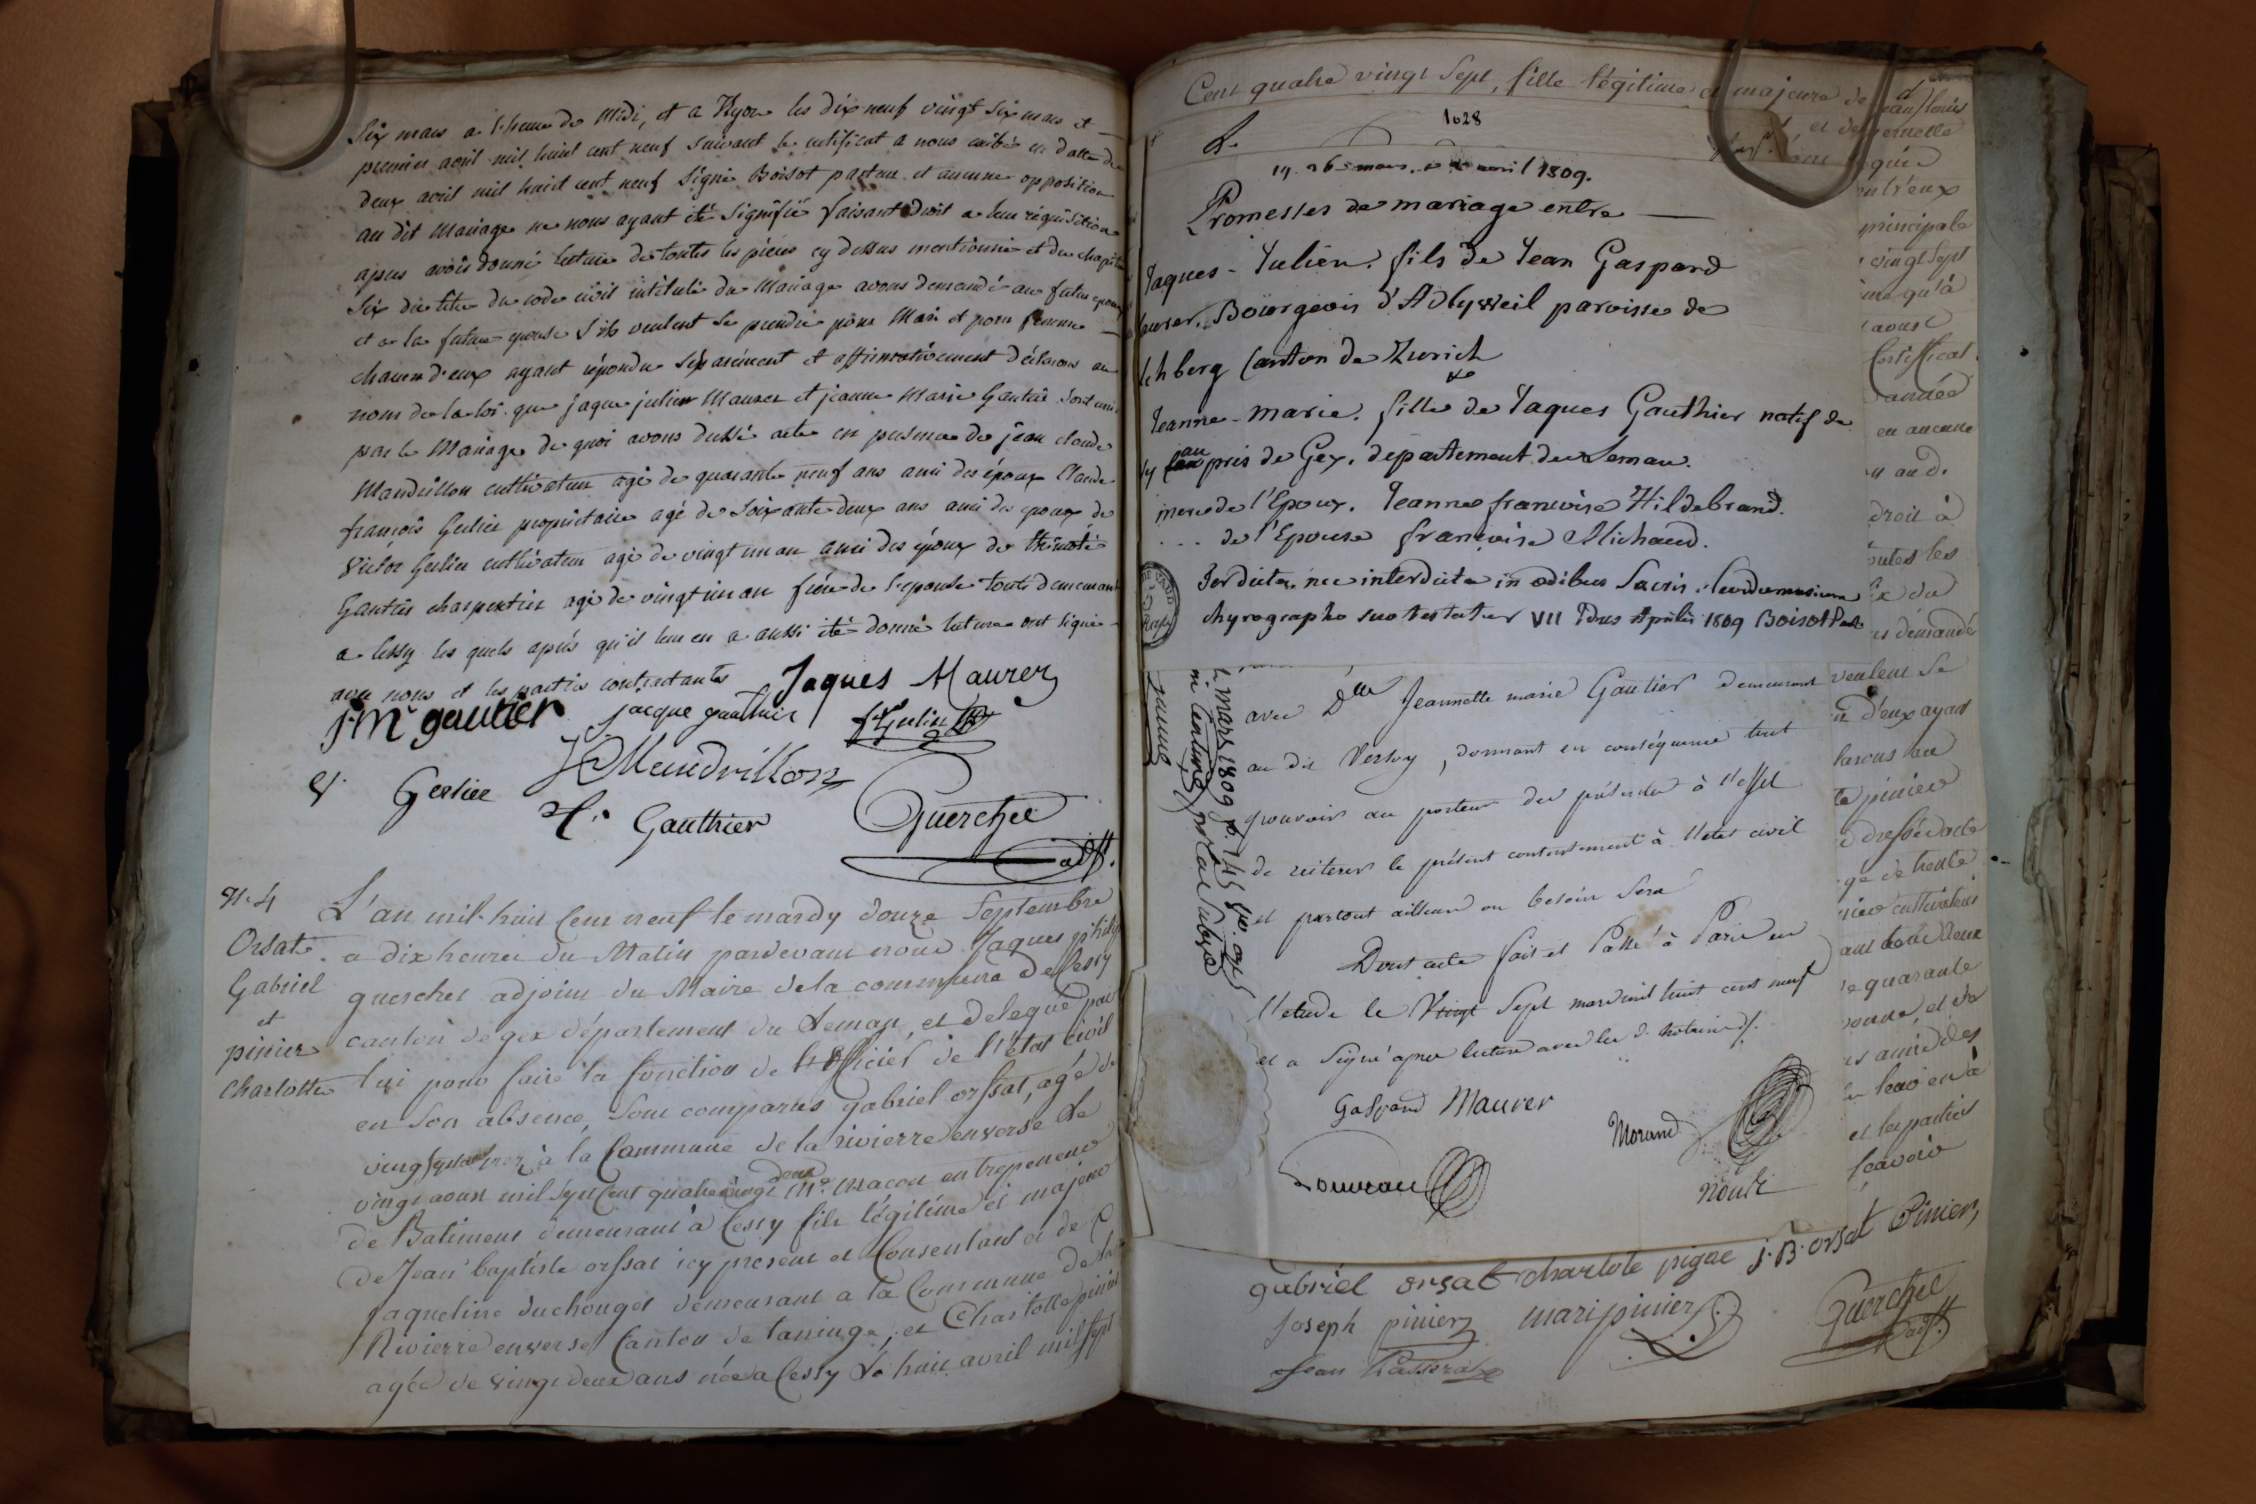 Six mars a l'heure de Midi, et a Nyon les dix neuf vingt six mars et
premier avril mil huit cent neuf suivant le certificat a nous exibé en datte du
deux avril mil huit cent neuf signé Boisot pasteur et aucune opposition
au dit Mariage ne nous ayant été signifié faisant droit a leur réquisition
apres avoir donné lecture de toutes les pieces cy dessus mentionné et du chapitre
six du titre du code civil intitulé du Mariage avons demandé au futur epoux
et a la future epouse s'ils veulent se prendre pour Mari et pour femme
chacun d'eux ayant répondu séparément et affirmativement déclarons au
nom de la loi que jaque julien Maurer et jeanne Marie Gautier sont unis
par le Mariage de quoi avons dressé acte en presence de jean claude
Mandrillon cultivateur agé de quarante neuf ans ami des époux Claude
françois Gerlier proprietaire agé de soixante deux ans ami des epoux de
Victor Gerlier cultivateur agé de vingt un an ami des époux de thimoté
Gautier charpentier agé de vingt un an frère de l'epouse touts demeurant
a Cessy les quels après qu'il leur en a aussi été donné lecture ont signé
avec nous et les parties contractantes Jaques Maurer
J M gautier jacque gauthier
V. Gerlier Mandrillon
T. Gauthier Querchee
adjt.
N. 4
Orsat
Gabriel
et
pinier
Charlotte
L'an mil huit Cent neuf le mardy douze Septembre
a dix heures du Matin pardevant nous Jaques philip
querchet adjoint du Maire de la commune de Cessy
canton de gex département du Leman, et délégué par
lui pour faire la fonction de l'officier de l'état civil
en son absence, sont comparus gabriel orssat, agé de
vingt sept ans né à la Commune de la rivierre enverse le
vingt aoust mil sept Cent quatre vingt deux Me. macon entrepeneur
de Batiment demeurant à Cessy fils légitime et majeur
de Jean baptiste orssat icy present et Consentant et de
jaqueline duchouget demeurant a la Commune de la
Rivierre enverse Canton de taninge, et Charlotte pinier
agée de vingt deux ans née a Cessy Le huit avril mil sept
Cent quatre vingt sept, fille légitime et majeure de jean louis
1028
19. 26 mars, avril 1809.
Promesses de mariage entre
Jaques-Julien, fils de Jean Gaspard
Maurer, Bourgeois d'Adlysweil paroisse de
Canton de Zurich
Jeanne-Marie, fille de Jaques Gauthier natif de
pris de Gex, departement du Leman.
mere de l'Epoux, Jeanne françoise Hildebrand.
de l'Epouse françoise Michaud.
nec interdicta in ædibus Sacris
chyrographo suo testatur VII Idus Aprilis 1809 Boisot Past
avec Dlle Jeannette marie Gautier demeurant
au dit Versoy, donnant en conséquence tout
pouvoir au porteur des présentes à l'effet
de reiterer le présent consentement à l'etat civil
et partout ailleurs ou besoin sera
Dont acte fait et Passé à Paris en
l'etude le Vingt Sept mars mil huit cent neuf
et a signé apres lecture avec les d. notaires
Gaspard Maurer
Morand
gabriel orsat charlote pigne J. B. orsat Pinier
Joseph pinier mari pinier Querchee
adjt.
Jean
mars 1809
centime
principale
vingt Sept
Certificat
en aucune
droit à
veulent se
d'eux ayant
dressé acte
cultivateur
quarante
et les parties
scavoir